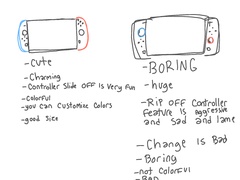 -CUTE
-Charming
-Controller Slide OFF is Very Fun
-Colorful
-you can Customize Colors
-good Size
-BORING
-huge
-Rip OFF Controller
Feature is aggressive
and Sad and lame
-Change is Bad
-Boring
-not Colorful
-BAD